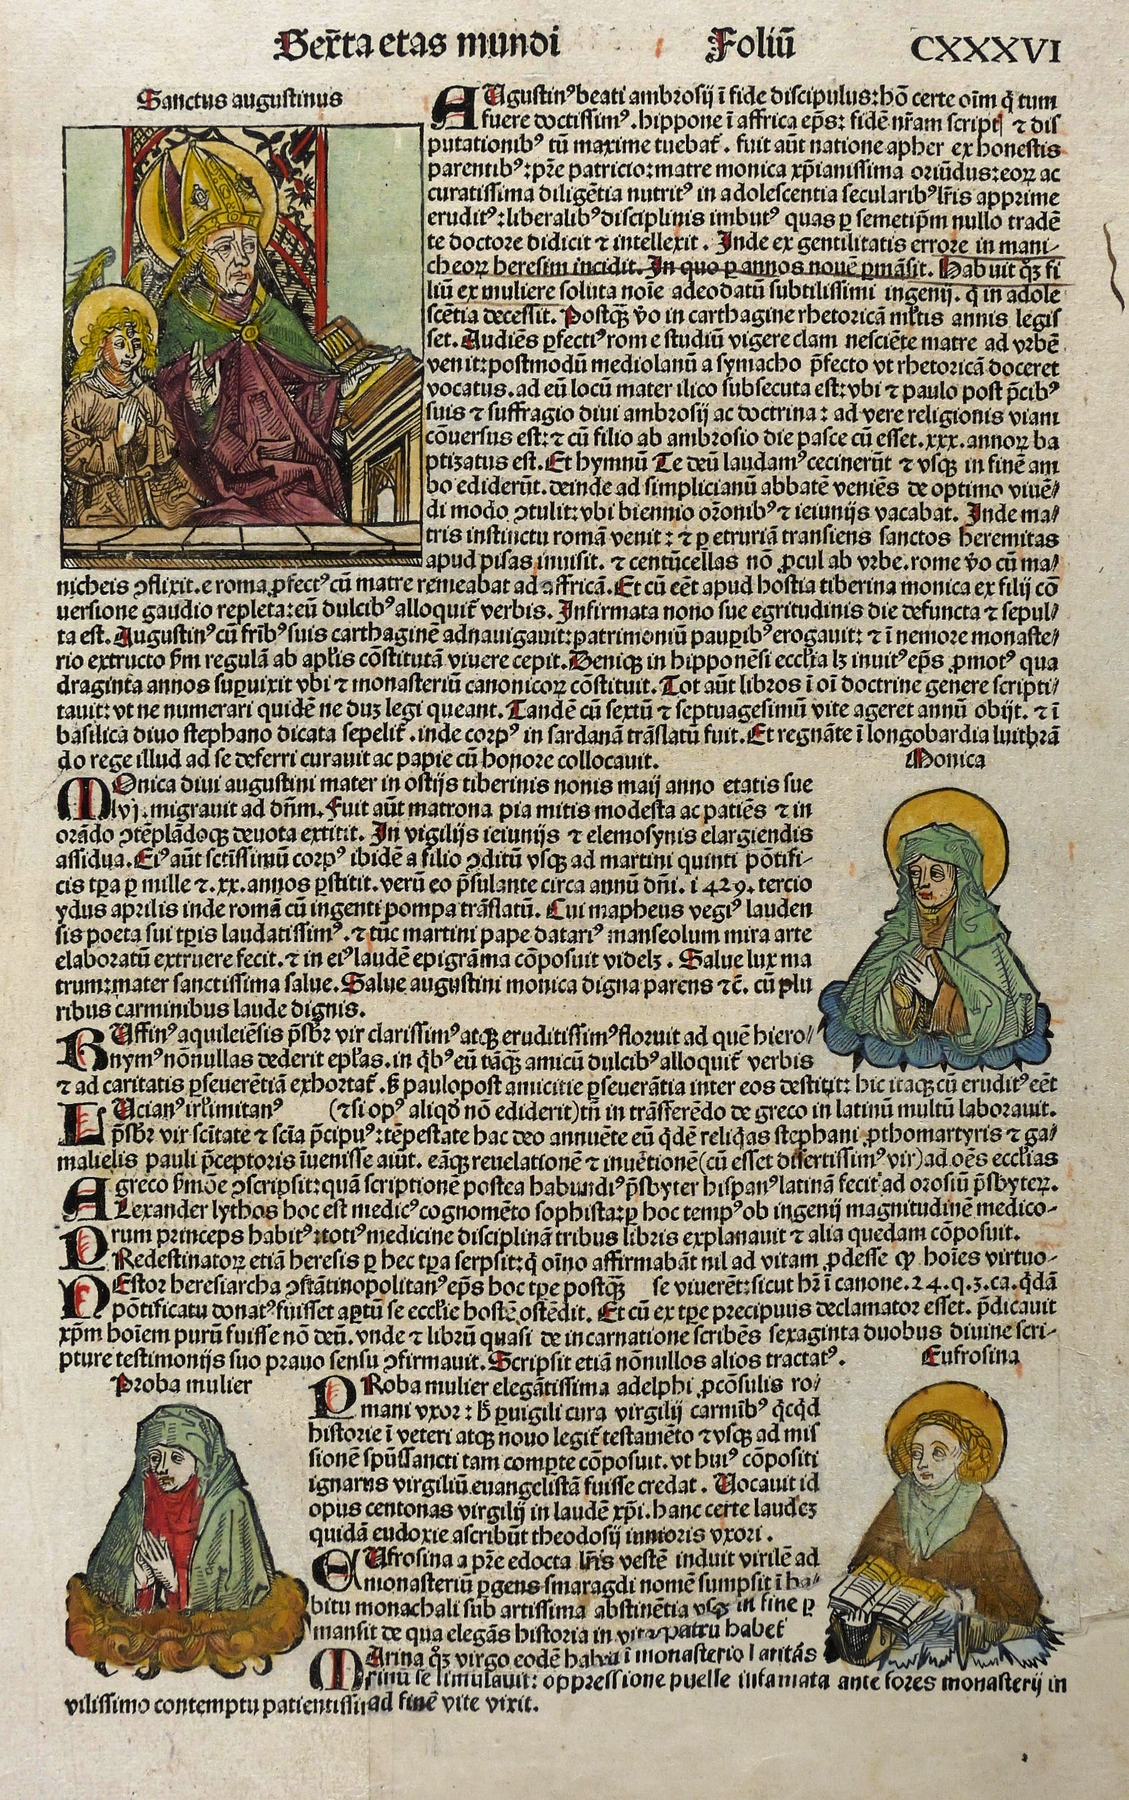 Sexta etas mundi Foliū CXXXVI
Sanctus augustinus
AUgustinꝰ beati ambrosij ī fide discipulus: hō certe oīm q̄ tum
fuere doctissimꝰ. hippone ī affrica ep̄s: fidē nr̄am script ⁊ dis
putationibꝰ tū maxime tuebat̄. fuit aūt natione apher ex honestis
parentibꝰ: pr̄e patricio: matre monica xp̄ianissima oriūdus: eoꝝ ac
curatissima diligētia nutritꝰ in adolescentia secularibꝰ lr̄is apprime
eruditꝰ: liberalibꝰ disciplinis imbutꝰ quas ꝑ semetip̄m nullo tradē
te doctore didicit ⁊ intellexit. Inde ex gentilitatis errore in mani-
cheoꝝ heresim incidit. In quo ꝑ annos nouē ꝑmāsit. Habuit qꝫ fi
liū ex muliere soluta noīe adeodatū subtilissimi ingenij. q̄ in adole
scētia decessit. Postqꝫ v̄o in carthagine rhetoricā ml̄tis annis legis
set. Audiēs ꝑfectꝰ rome studiū vigere clam nesciēte matre ad vrbē
venit: postmodū mediolanū a symacho p̄fecto vt rhetoricā doceret
vocatus. ad eū locū mater ilico subsecuta est: vbi ⁊ paulo post p̄cibꝰ
suis ⁊ suffragio diui ambrosij ac doctrina: ad vere religionis viam
cōuersus est: ⁊ cū filio ab ambrosio die pasce cū esset .xxx. annoꝝ ba
ptizatus est. Et hymnū Te deū laudamꝰ cecinerūt ⁊ vsqꝫ in finē am
bo ediderūt. deinde ad simplicianū abbatē veniēs de optimo viuē/
di modo ꝯtulit: vbi biennio or̄onibꝰ ⁊ ieiunijs vacabat. Inde ma/
tris instinctu romā venit: ⁊ ꝑ etruriā transiens sanctos heremitas
apud pisas inuisit. ⁊ centūcellas nō ꝓcul ab vrbe. rome v̄o cū ma/
nicheis ꝯflixit. e roma ꝓfectꝰ cū matre remeabat ad affricā. Et cū eēt apud hostia tiberina monica ex filij cō
uersione gaudio repleta: eū dulcibꝰ alloquit̄ verbis. Infirmata nono sue egritudinis die defuncta ⁊ sepul/
ta est. Augustinꝰ cū fr̄ibꝰ suis carthaginē adnauigauit: patrimoniū pauꝑibꝰ erogauit: ⁊ ī nemore monaste/
rio extructo ẜm regulā ab apl̄is cōstitutā viuere cepit. Deniqꝫ in hipponēsi eccl̄ia lꝫ inuitꝰ ep̄s ꝓmotꝰ qua
draginta annos suꝑuixit vbi ⁊ monasteriū canonicoꝝ cōstituit. Tot aūt libros ī oī doctrine genere scripti/
tauit: vt ne numerari quidē ne duꝫ legi queant. Tandē cū sextū ⁊ septuagesimū vite ageret annū obijt. ⁊ ī
basilica diuo stephano dicata sepelit̄. inde corpꝰ in sardanā trāslatū fuit. Et regnāte ī longobardia luithrā
do rege illud ad se deferri curauit ac papie cū honore collocauit.
Monica
MOnica diui augustini mater in ostijs tiberinis nonis maij anno etatis sue
lvj. migrauit ad dn̄m. Fuit aūt matrona pia mitis modesta ac patiēs ⁊ in
orādo ꝯtēplādoqꝫ deuota extitit. In vigilijs ieiunijs ⁊ elemosynis elargiendis
assidua. Eiꝰ aūt sctissimū corpꝰ ibidē a filio ꝯditū vsqꝫ ad martini quinti pōtifi-
cis tꝑa ꝑ mille ⁊ .xx. annos ꝑstitit. verū eo p̄sulante circa annū dn̄i. 1429. tercio
ydus aprilis inde romā cū ingenti pompa trāslatū. Cui mapheus vegiꝰ lauden
sis poeta sui tꝑis laudatissimꝰ. ⁊ tūc martini pape datariꝰ manseolum mira arte
elaboratū extruere fecit. ⁊ in eiꝰ laudē epigrāma cōposuit videlꝫ. Salue lux ma
trum: mater sanctissima salue. Salue augustini monica digna parens ⁊c̄. cū plu
ribus carminibus laude dignis.
RUffinꝰ aquileiēsis p̄sbr̄ vir clarissimꝰ atqꝫ eruditissimꝰ floruit ad quē hiero/
nymꝰ nōnullas dederit epl̄as. in qͥbꝰ eū tāqꝫ amicū dulcibꝰ alloquit̄ verbis
⁊ ad caritatis ꝑseuerētiā exhortat̄. ẜꝫ paulopost amicitie ꝑseuerātia inter eos destitit: hic itaqꝫ cū eruditꝰ eēt
LUcianꝰ irl̄imitanꝰ (⁊ si opꝰ aliqͩ nō ediderit) tn̄ in trāsferēdo de greco in latinū multū laborauit.
p̄sbr̄ vir scītate ⁊ scīa p̄cipuꝰ: tēpestate hac deo annuēte eū qͥdē reliqͥas stephani ꝓthomartyris ⁊ ga/
malielis pauli p̄ceptoris īuenisse aiūt. eāqꝫ reuelationē ⁊ inuētionē (cū esset disertissimꝰ vir) ad oēs eccl̄ias
greco ẜmōe ꝯscripsit: quā scriptionē postea habundiꝰ p̄sbyter hispanꝰ latinā fecit ad orosiū p̄sbyteꝝ.
ALexander lythos hoc est medicꝰ cognomēto sophista: ꝑ hoc tempꝰ ob ingenij magnitudinē medico-
rum princeps habitꝰ: totiꝰ medicine disciplinā tribus libris explanauit ⁊ alia quedam cōposuit.
PRedestinatoꝝ etiā heresis ꝑ hec tꝑa serpsit: q̄ oīno affirmabāt nil ad vitam ꝓdesse ꝙ hoīes virtuo-
se viuerēt: sicut hr̄ ī canone. 24. q. 3. ca. qͥdā
NEstor heresiarcha ꝯstātinopolitanꝰ ep̄s hoc tꝑe postqꝫ
pōtificatu donatꝰ fuisset aꝑtū se eccl̄ie hostē ostēdit. Et cū ex tꝑe precipuus declamator esset. p̄dicauit
xp̄m hoīem purū fuisse nō deū. vnde ⁊ librū quasi de incarnatione scribēs sexaginta duobus diuine scri-
pture testimonijs suo prauo sensu ꝯfirmauit. Scripsit etiā nōnullos alios tractatꝰ.
Eufrosina
Proba mulier
PRoba mulier elegātissima adelphi ꝓcōsulis ro/
mani vxor: ẜꝫ ꝑuigili cura virgilij carmībꝰ qͥcqͥd
historie ī veteri atqꝫ nouo legit̄ testamēto ⁊ vsqꝫ ad mis
sionē sp̄ūssancti tam compte cōposuit. vt huiꝰ cōpositi
ignarus virgiliū euangelistā fuisse credat. Uocauit id
opus centonas virgilij in laudē xp̄i. hanc certe laudeꝫ
quidā eudoxie ascribūt theodosij iunioris vxori.
EUfrosina a pr̄e edocta lr̄is vestē induit virilē ad
monasteriū ꝑgens smaragdi nomē sumpsit ī ha-
bitu monachali sub artissima abstinētia vsqꝫ in fine ꝑ
mansit de qua elegās historia in vit⁊ patrū habet̄
MArina qꝫ virgo eodē habitu ī monasterio latitās
rinū se simulauit: oppressione puelle infamata ante fores monasterij in
vilissimo contemptu patientissi ad finē vite vixit.